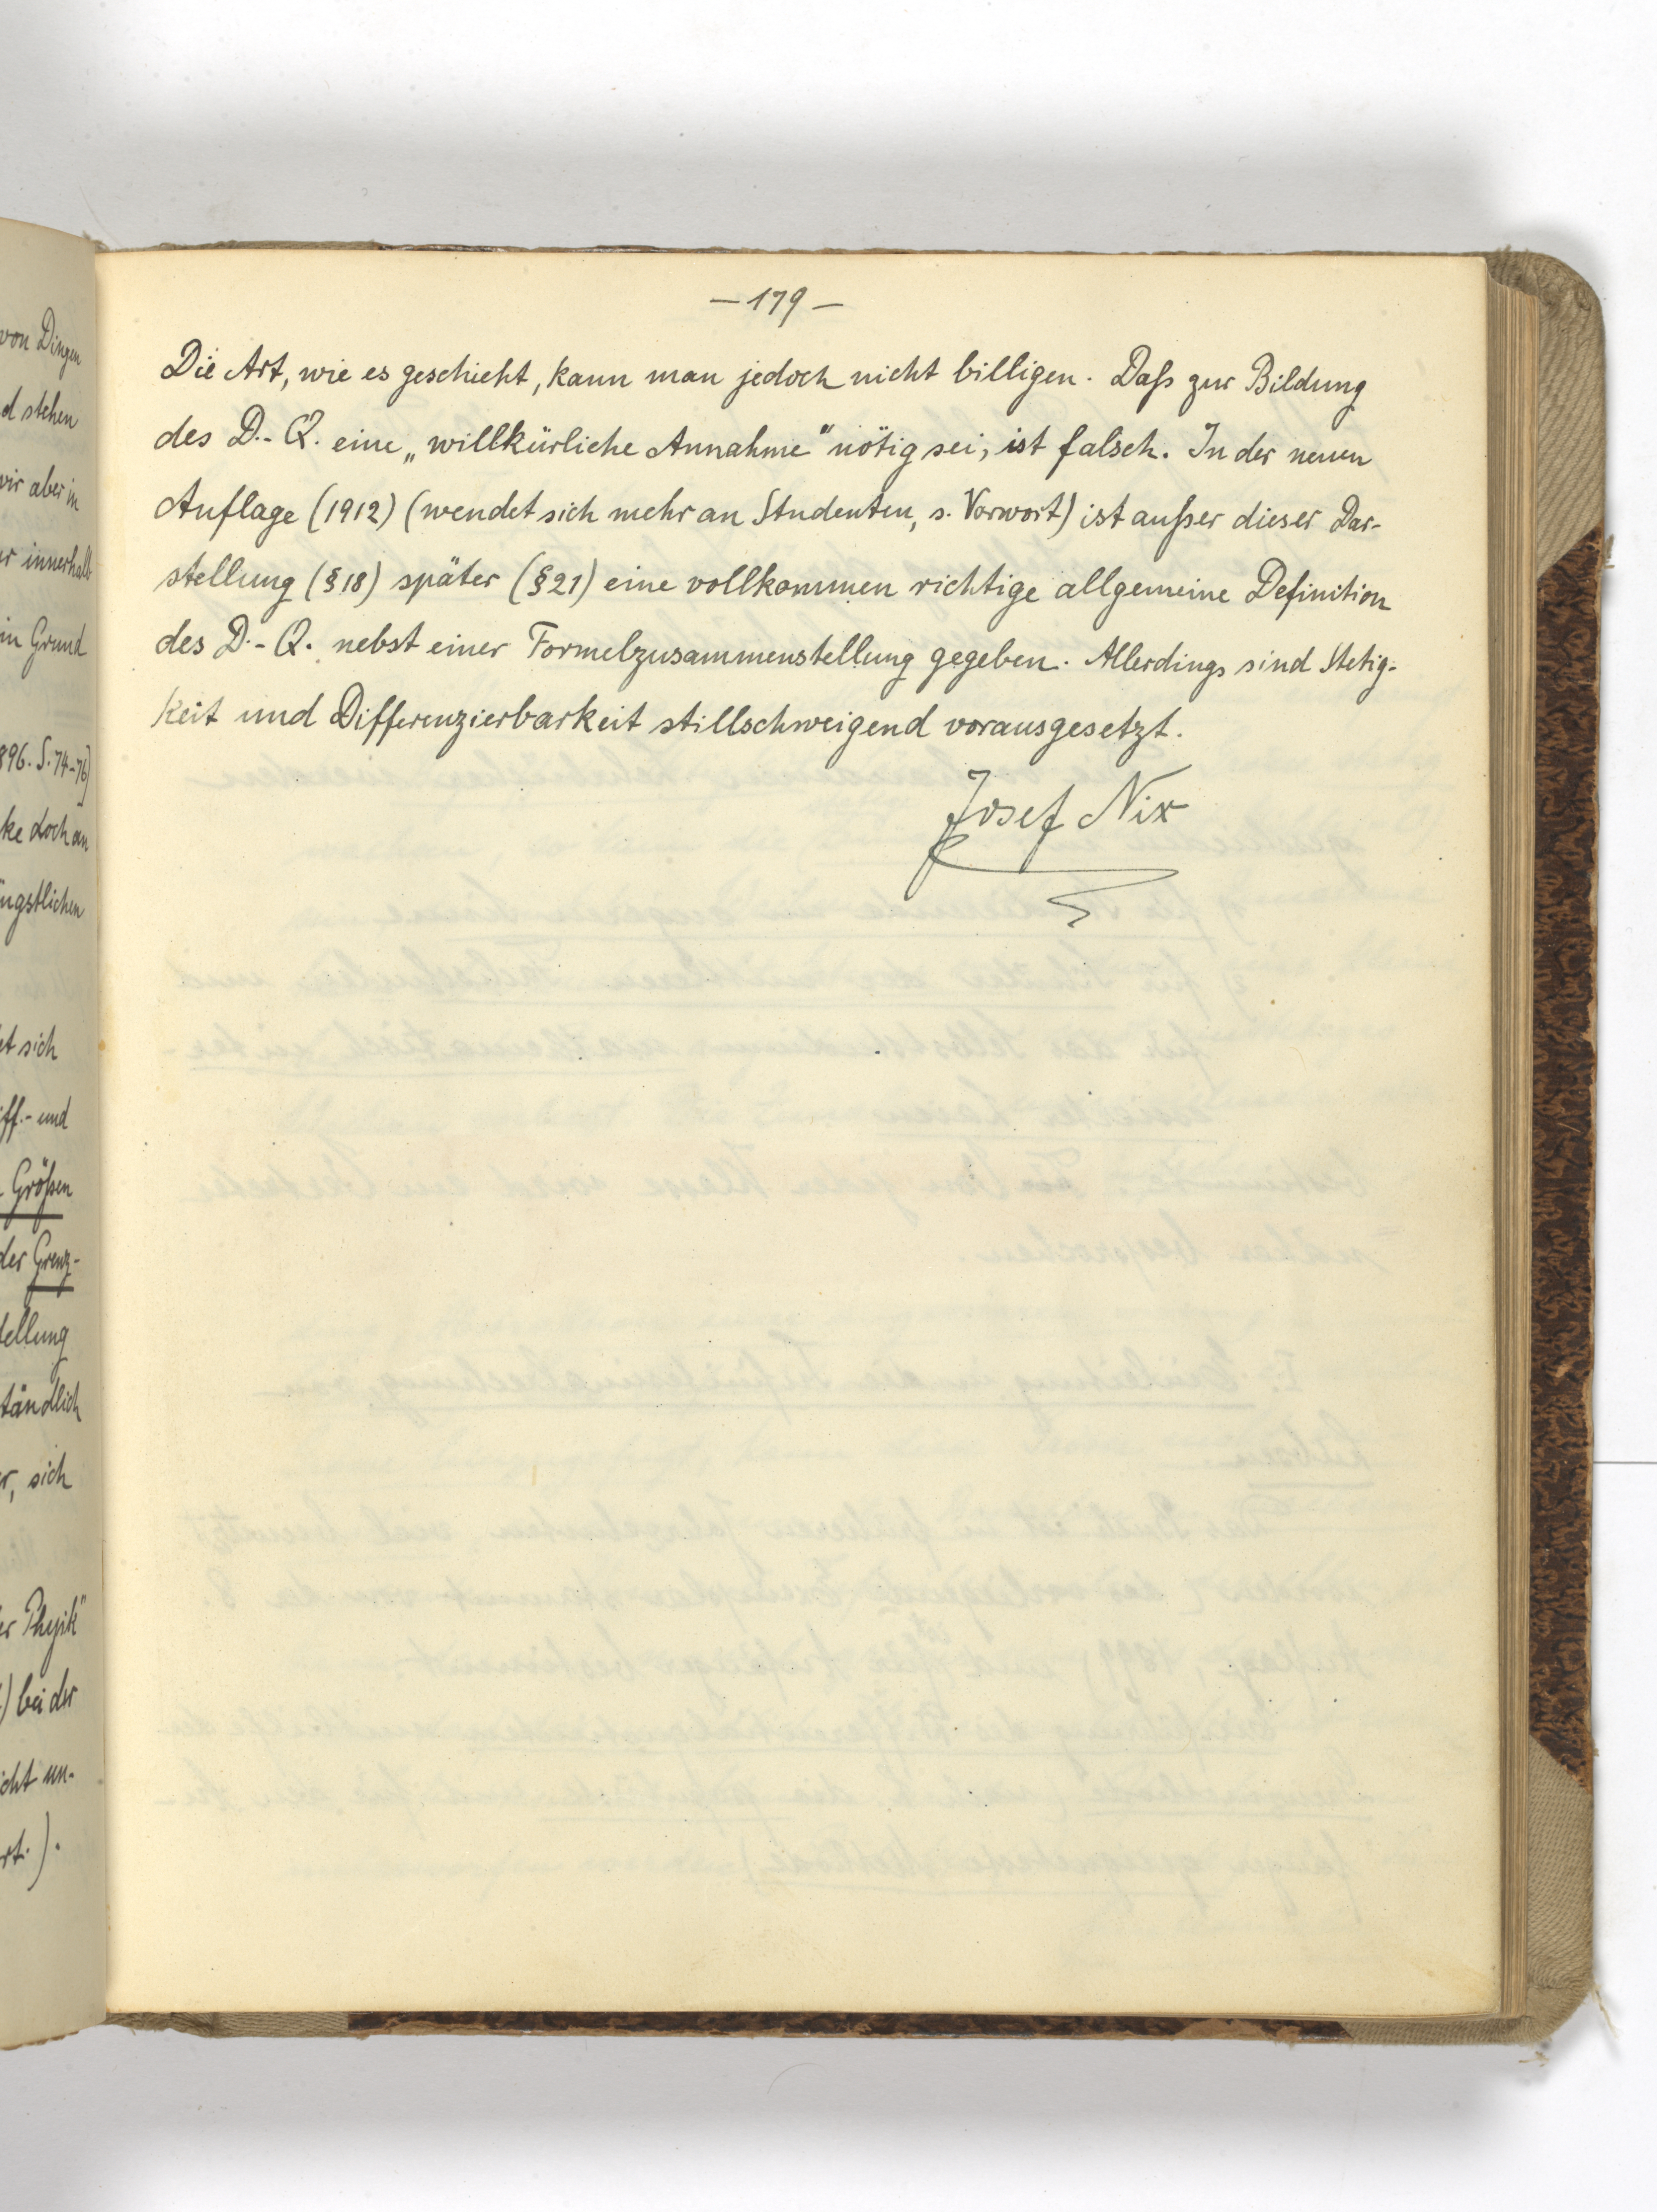 von Dingen
d stehen
wir aber in
er innerhalb
in Grund
896. S. 74-76)
ke doch an
ngstlichen
et sich
iff.- und
Größen
der Grenz-
tellung
tändlich
r, sich
er Physik"
) bei der
icht un-
rt.).
— 179 —
Die Art, wie es geschieht, kann man jedoch nicht billigen. Daß zur Bildung
des D.-Q. eine „willkürliche Annahme" nötig sei, ist falsch. In der neuen
Auflage (1912) (wendet sich mehr an Studenten, s. Vorwort) ist außer dieser Dar-
stellung (§18) später (§21) eine vollkommen richtige allgemeine Definition
des D.-Q. nebst einer Formelzusammenstellung gegeben. Allerdings sind Stetig-
keit und Differenzierbarkeit stillschweigend vorausgesetzt.
Josef Nix